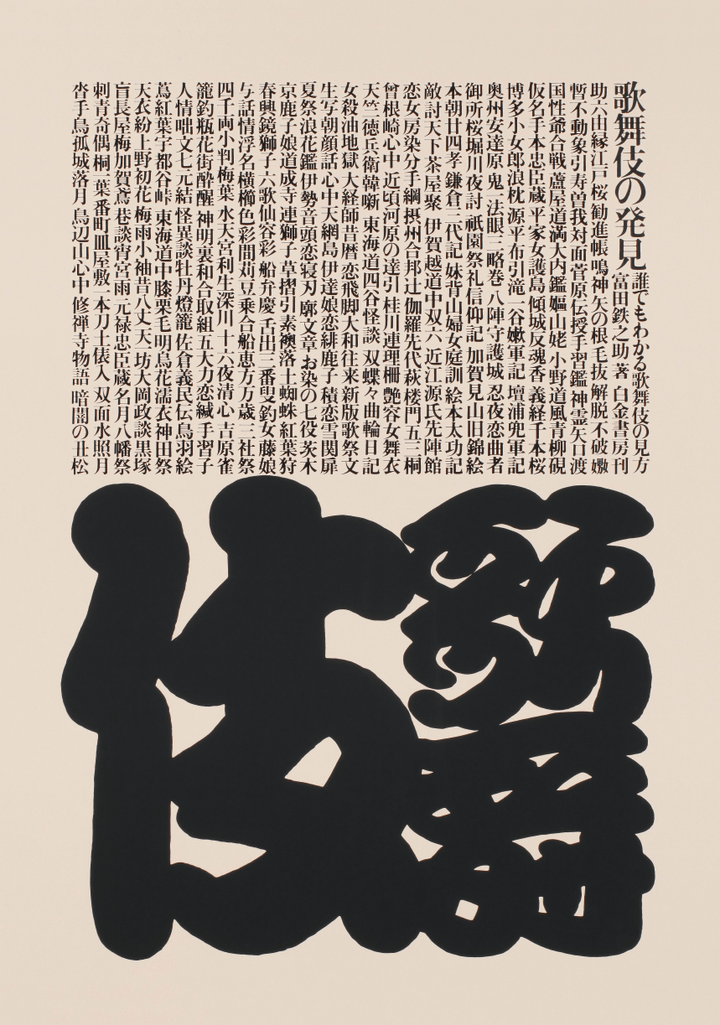 歌舞伎の発見
誰でもわかる歌舞伎の見方
富田鉄之助 著 白金書房刊
助六由縁江戸桜 勧進帳 鳴神 矢の根 毛抜 解脱 不破 嫐
暫 不動 象引 寿曽我対面 菅原伝授手習鑑 神霊矢口渡
国性爺合戦 蘆屋道満大内鑑 嫗山姥 小野道風青柳硯
仮名手本忠臣蔵 平家女護島 傾城反魂香 義経千本桜
博多小女郎浪枕 源平布引滝 一谷嫩軍記 壇浦兜軍記
奥州安達原 鬼一法眼三略巻 八陣守護城 忍夜恋曲者
御所桜堀川夜討 祇園祭礼信仰記 加賀見山旧錦絵
本朝廿四孝 鎌倉三代記 妹背山婦女庭訓 絵本太功記
敵討天下茶屋聚 伊賀越道中双六 近江源氏先陣館
恋女房染分手綱 摂州合邦辻 伽羅先代萩 楼門五三桐
曾根崎心中 近頃河原の達引 桂川連理柵 艶容女舞衣
天竺徳兵衛韓噺 東海道四谷怪談 双蝶々曲輪日記
女殺油地獄 大経師昔暦 恋飛脚大和往来 新版歌祭文
生写朝顔話 心中天網島 伊達娘恋緋鹿子 積恋雪関扉
夏祭浪花鑑 伊勢音頭恋寝刃 廓文章 お染の七役 茨木
京鹿子娘道成寺 連獅子 草摺引 素襖落 土蜘 紅葉狩
春興鏡獅子 六歌仙容彩 船弁慶 舌出三番叟 釣女 藤娘
与話情浮名横櫛 色彩間苅豆 乗合船恵方万歳 三社祭
四千両小判梅葉 水天宮利生深川 十六夜清心 吉原雀
籠釣瓶花街酔醒 神明恵和合取組 五大力恋緘 手習子
人情噺文七元結 怪異談牡丹燈籠 佐倉義民伝 鳥羽絵
蔦紅葉宇都谷峠 東海道中膝栗毛 明烏花濡衣 神田祭
天衣紛上野初花 梅雨小袖昔八丈 天一坊大岡政談 黒塚
盲長屋梅加賀鳶 巷談宵宮雨 元禄忠臣蔵 名月八幡祭
刺青奇偶 桐一葉 番町皿屋敷 一本刀土俵入 双面水照月
沓手鳥孤城落月 鳥辺山心中 修禅寺物語 暗闇の丑松
歌舞伎